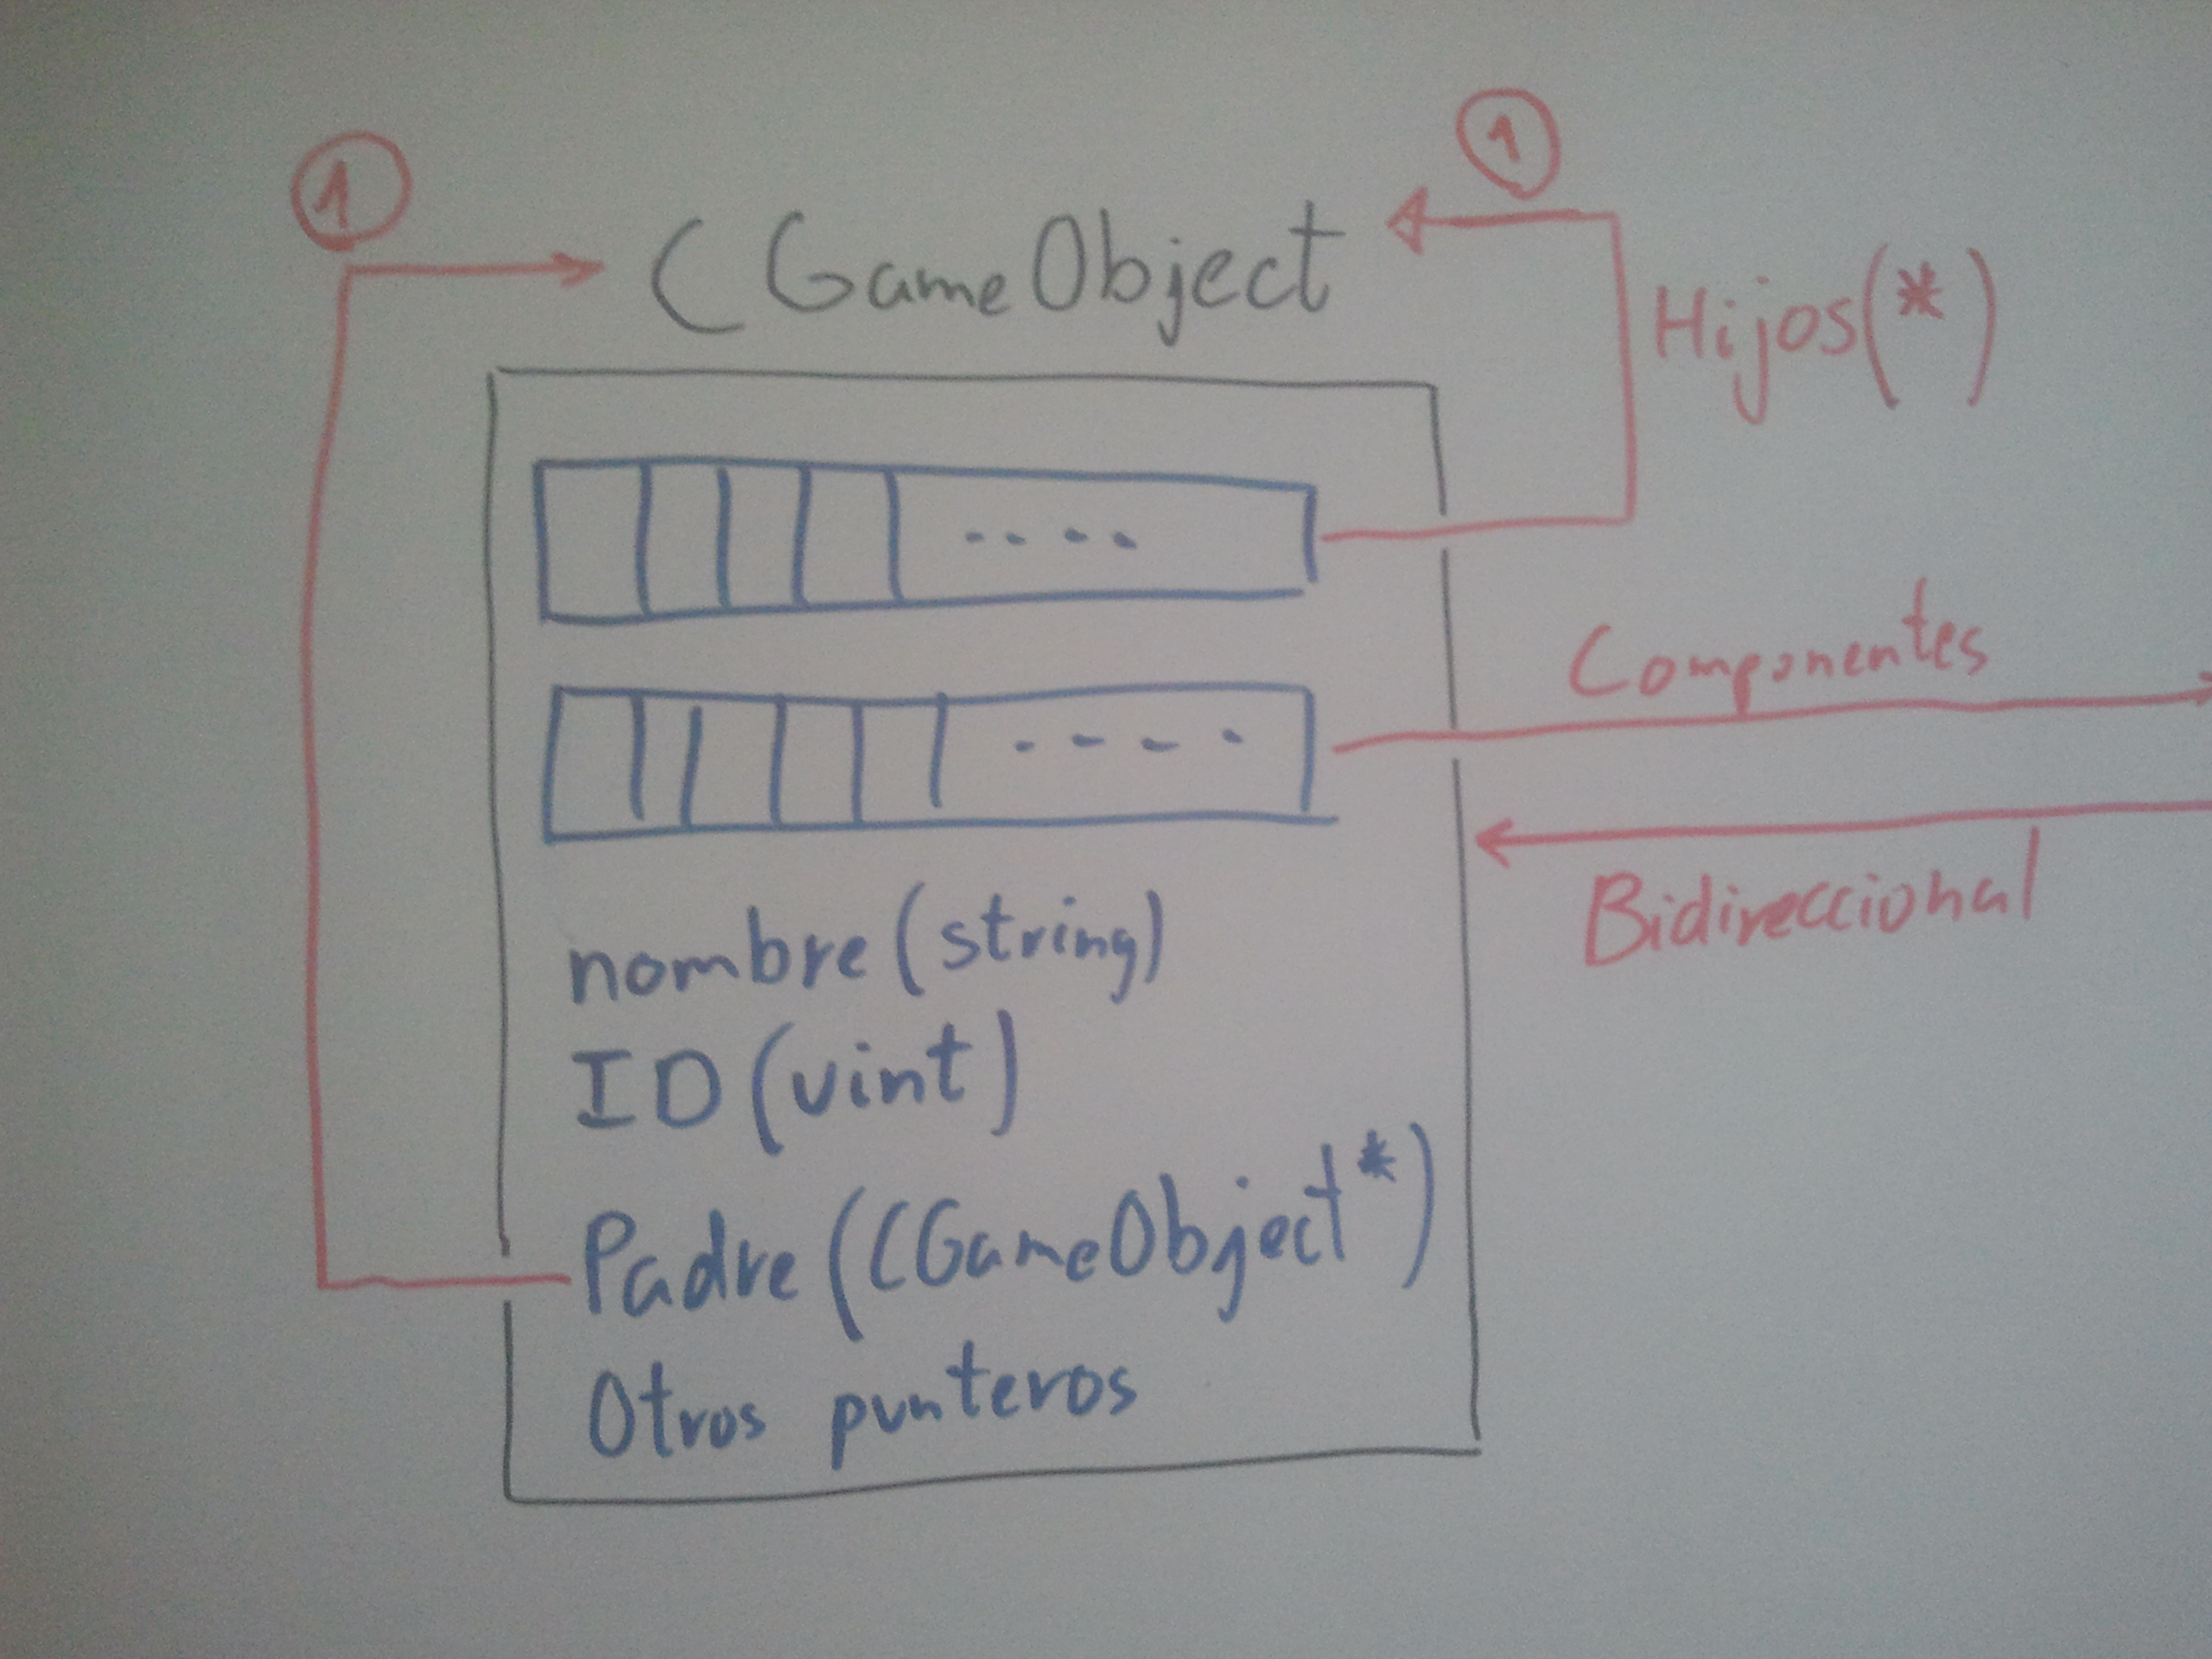 1
1
CGameObject
Hijos(*)
....
Componentes
----
Bidireccional
nombre (string)
ID (uint)
Padre (CGameObject*)
Otros punteros